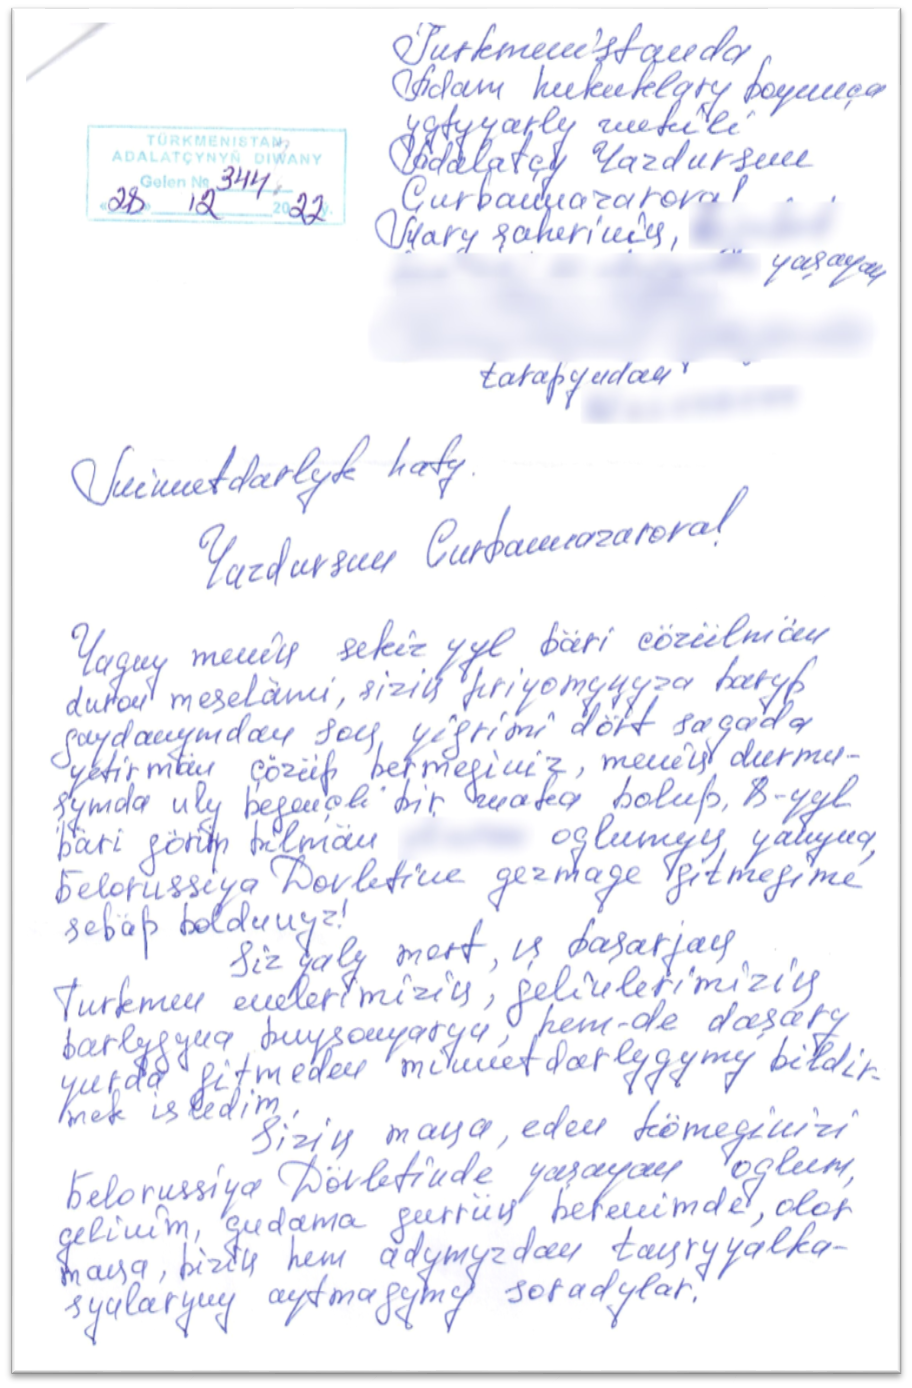 Turkmenistanda
Adam hukuklary boyunça
ygtyyarly wekili
Adalatçy Yazdursun
Gurbannazarova!
TÜRKMENISTAN
ADALATÇYNYŇ DIWANY
Gelen № 344
«28» 12 2022 y.
Mary şäherinin,
yaşayan
tarapyndan
Minnetdarlyk haty.
Yazdursun Gurbannazarova!
Yagny menin sekiz yyl bäri çözülmän
duran meselämi, sizin priyomynyza baryp
gaydanymdan son yigrimi dört sagada
yetirmän çözüp bermeginiz, menin durmu-
şymda uly begençli bir waka bolup, 8-yyl
bäri görüp bilmän oglumyn yanyna,
Belorussiya Dövletine gezmäge gitmegime
sebäp boldunyz!
Siz yaly mert, iş başarjan
Turkmen enelerimizin, gelinlerimizin
barlygyna buysanyaryn, hem-de daşary
yurda gitmeden minnetdarlygymy bildir-
mek isledim.
Sizin mana, eden kömeginizi
Belorussiya Dövletinde yaşayan oglum,
gelinim, gudama gürrün berenimde, olar
mana, bizin hem adymyzdan tanryyalka-
synlaryny aytmagymy soradylar.